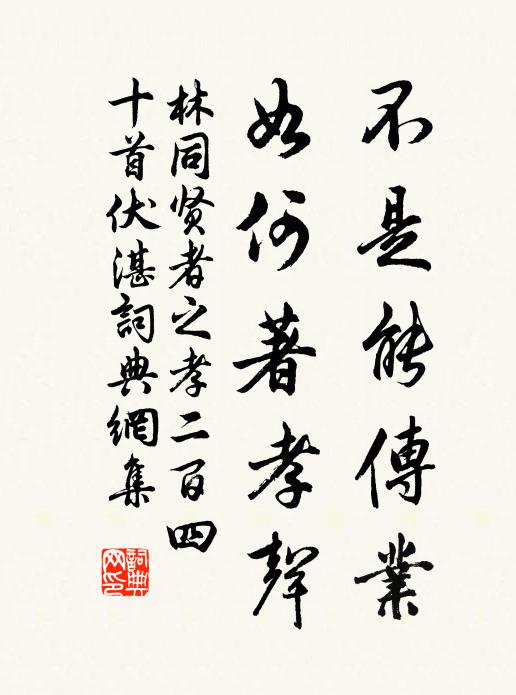 不是能傳業
如何著孝聲
林同贤者之孝二百四
十首伏湛詞典網集
詞典网印